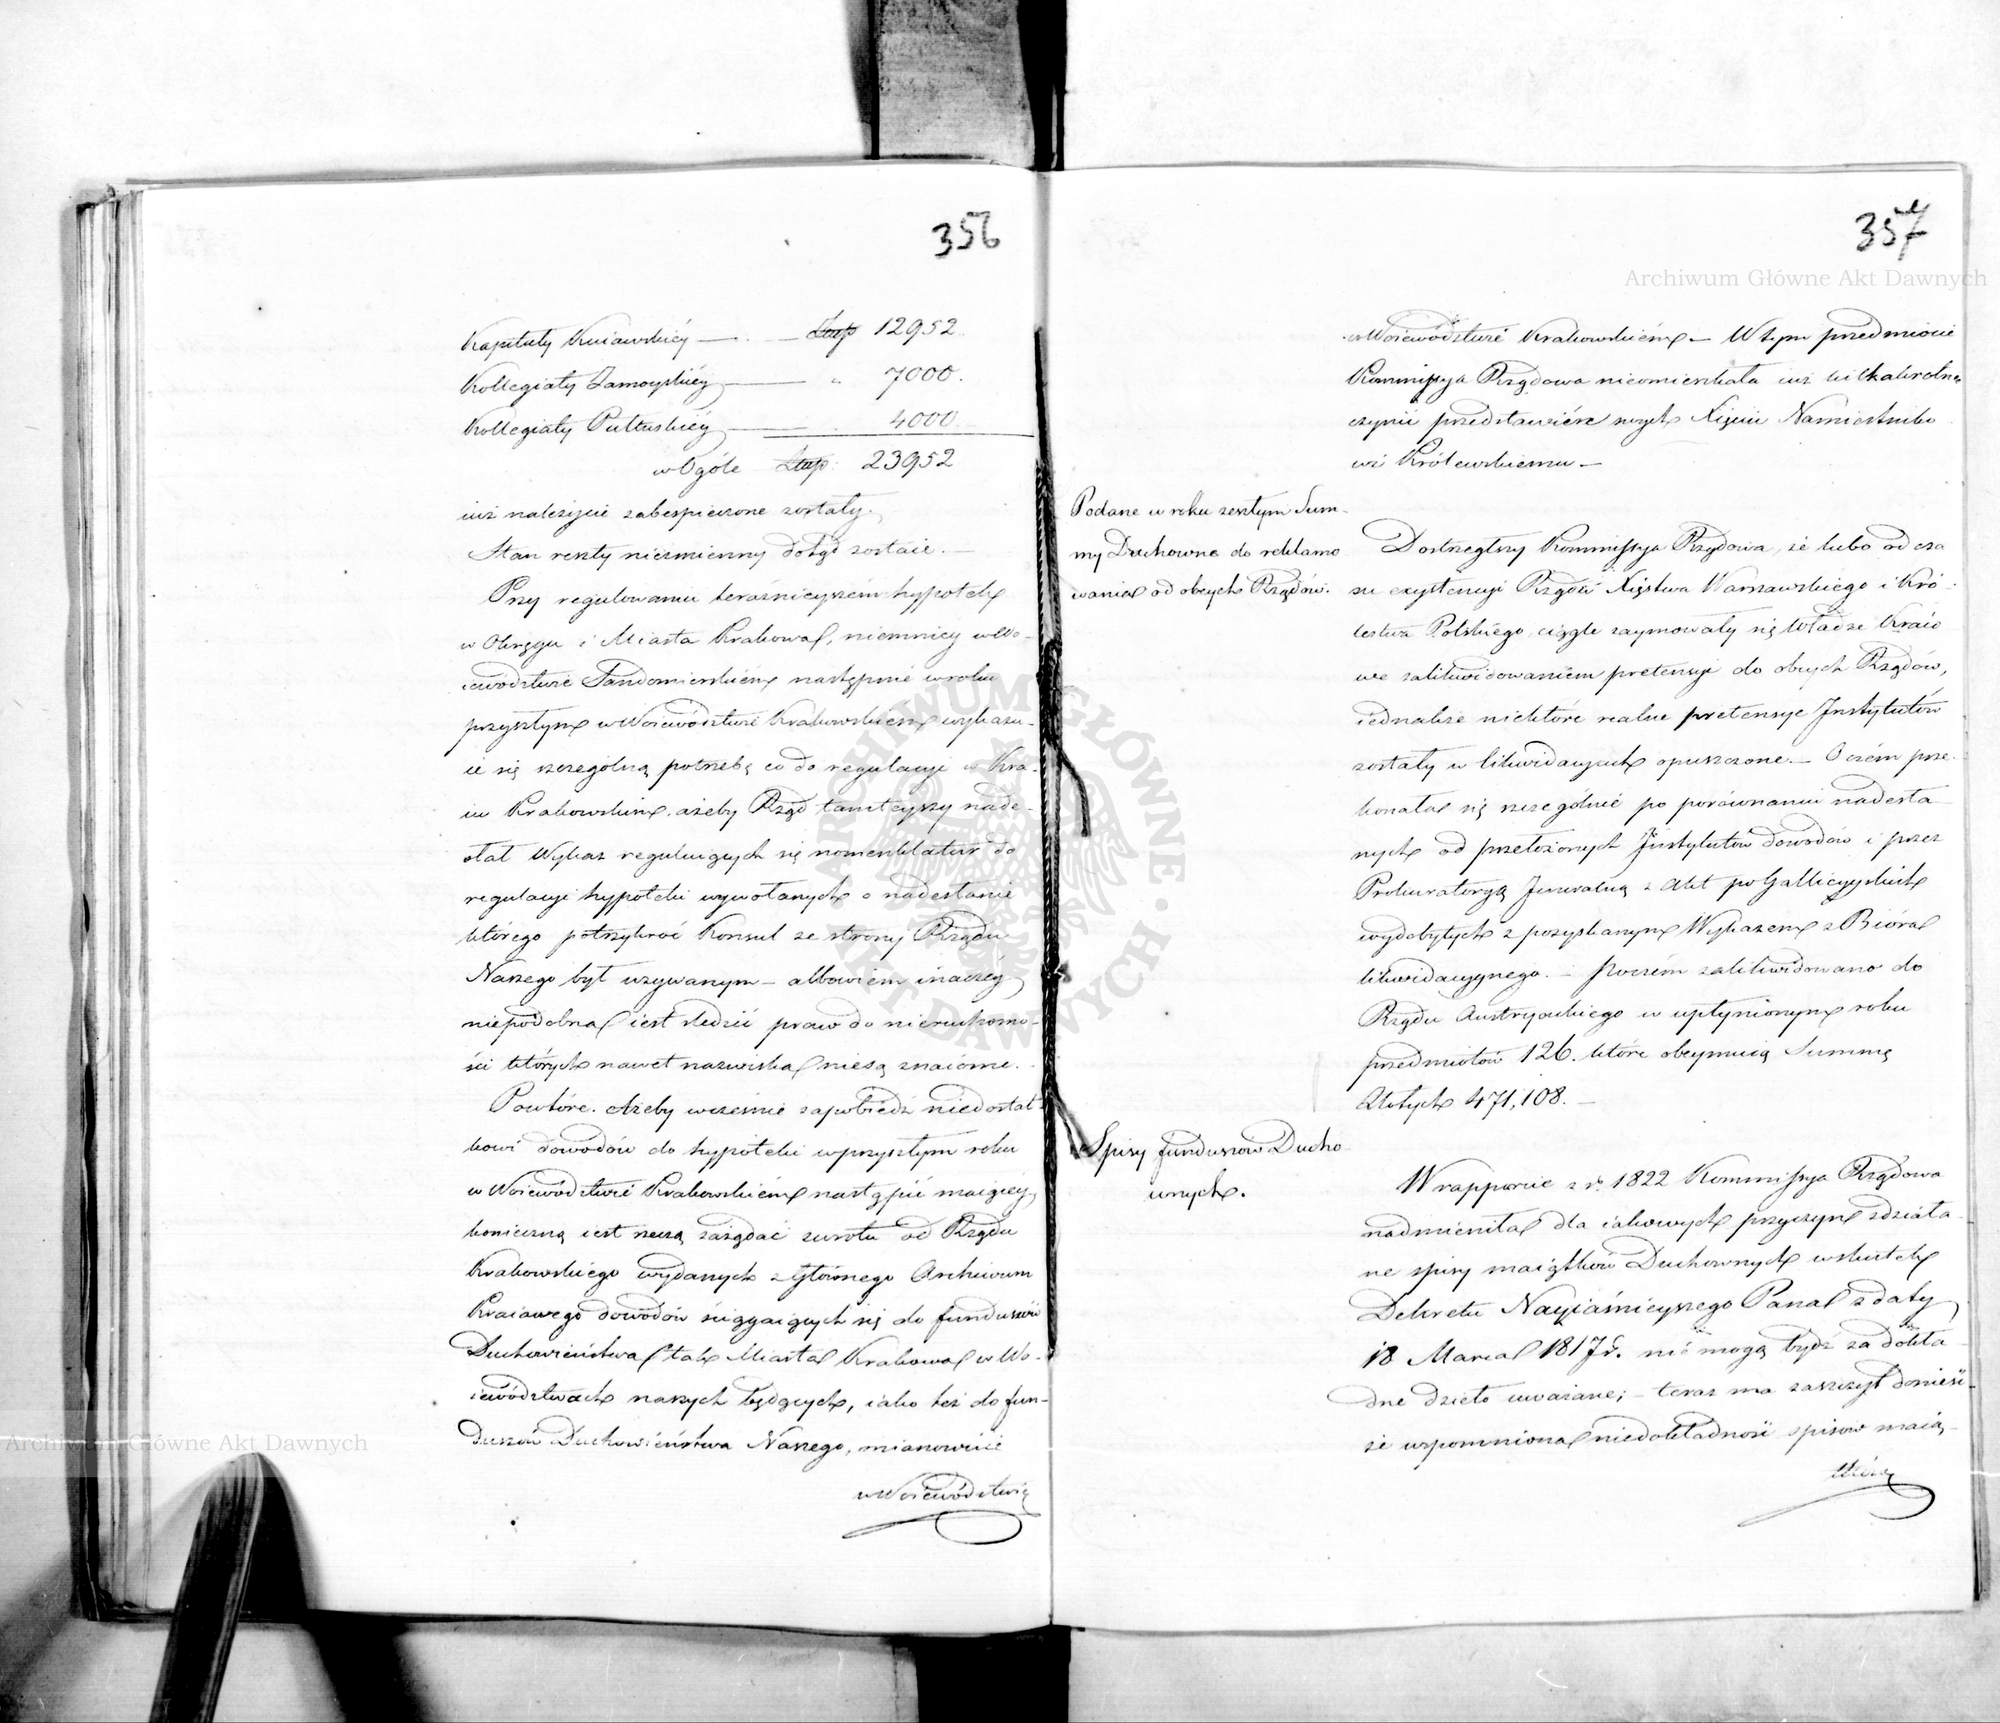 356
Kapituły Kuiawskiéy — . — Złtp 12952.
Kollegiaty Zamoyskiéy — „ 7000.
Kollegiaty Pułtuskiéy — . 4000.
w Ogóle Złtp: 23952
iuż należycie zabespieczone zostały.
Stan reszty niezmienny dotąd zostaie. —
Przy regulowaniu teraźnieyszém hypotek
w Okręgu i Miasta Krakowa, niemniéy w Wo-
iewództwie Sandomierskiém następnie w roku
przyszłym w Woiewództwie Krakowskiem wykazu-
ie się szczególną potrzebę co do regulacyi w Kra-
iu Krakowskim, ażeby Rząd tamteyszy nade-
słał Wykaz reguluiących się nomenklatur do
regulacyi hypoteki wywołanych o nadesłanie
którego potrzykroć Konsul ze strony Rządu
Naszego był wzywanym — albowiem inaczéy
niepodobna iest śledzić praw do nieruchomo-
ści których nawet nazwiska niesą znaiome.
Powtóre. Ażeby wcześnie zapobiedz niedostat-
kowi dowodów do hypoteki w przyszłym roku
w Woiewództwie Krakowskiém nastąpić maiącey,
konieczną iest rzeczą zażądać zwrotu od Rządu
Krakowskiego wydanych z Głównego Archiwum
Kraiowego dowodów ściągaiących się do funduszów
Duchowieństwa tak Miasta Krakowa w Wo-
iewództwach naszych będących, iako też do fun-
duszów Duchowieństwa Naszego, mianowicie
w Woiewództwie
357
w Woiewództwie Krakowskiém — W tym przedmiocie
Kommissya Rządowa nieomieszkała iuż kilkakrotnie
czynić przedstawień swych Xięciu Namiestniko
wi Królewskiemu —
Podane w roku zeszłym Sum-
my Duchowne do reklamo
wania od obcych Rządów.
Dostrzegłszy Kommissya Rządowa, że lubo od cza
su exystencyi Rządu Xięstwa Warszawskiego i Kró-
lestwa Polskiego, ciągle zaymowały się Władze Kraio
we zalikwidowaniem pretensyi do obcych Rządów,
iednakże niektóre realne pretensye Instytutów
zostały w likwidacyach opuszczone. — O czém prze-
konała się szczególnie po porównaniu nadesła
nych od przełożonych Instytutów dowodów i przez
Prokuratoryą Jeneralną z Akt po Gallicyyskich
wydobytych z pozyskanym Wykazem z Bióra
likwidacyynego. — Poczém zalikwidowano do
Rządu Austryackiego w upłynionym roku
przedmiotów 126. które obeymuią Summę
Złotych 471,108. —
Spisy funduszów Ducho
wnych.
W rapporcie z r. 1822 Kommissya Rządowa
nadmieniła dla iakowych przyczyn zdziała-
ne spisy maiątków Duchownych wskutek
Dekretu Nayiaśnieyszego Pana z daty
18 Marca 1817 r. nie mogą bydź za dokła-
dne dzieło uważane; — teraz ma zaszczyt donieść
że wspomniona niedokładność spisów maią-
Archiwum Główne Akt Dawnych
Archiwum Główne Akt Dawnych
ARCHIWUM GŁÓWNE · AKT DAWNYCH ·